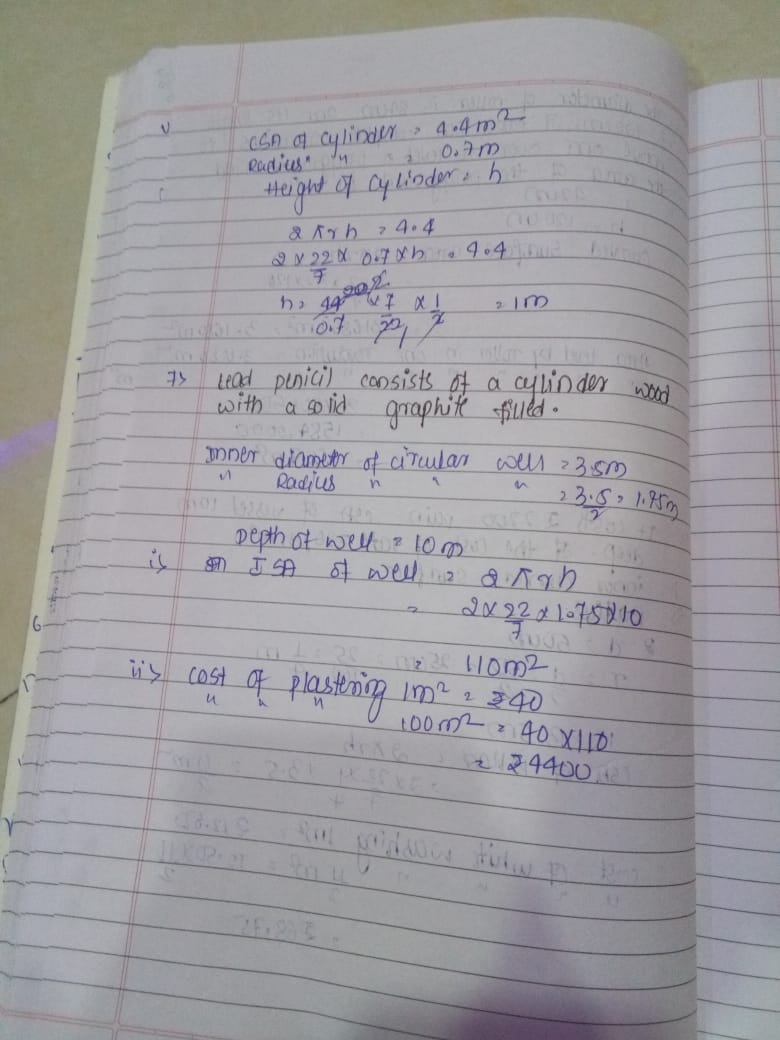 CSA of cylinder = 4.4m²
Radius " = 0.7m
Height of cylinder = h
2πrh = 4.4
2 × 22/7 × 0.7 × h = 4.4
h = 44/0.7 × 7/22 × 1/2 = 1m
7> Lead penicil consists of a cylinder wood
with a solid graphite filled.
Inner diameter of circular well = 3.5m
" Radius " " " = 3.5/2 = 1.75m
Depth of well = 10m
i> ISA of well = 2πrh
= 2 × 22/7 × 1.75 × 10
= 110m²
ii> cost of plastering 1m² = ₹40
" " " 100m² = 40 × 110
= ₹4400